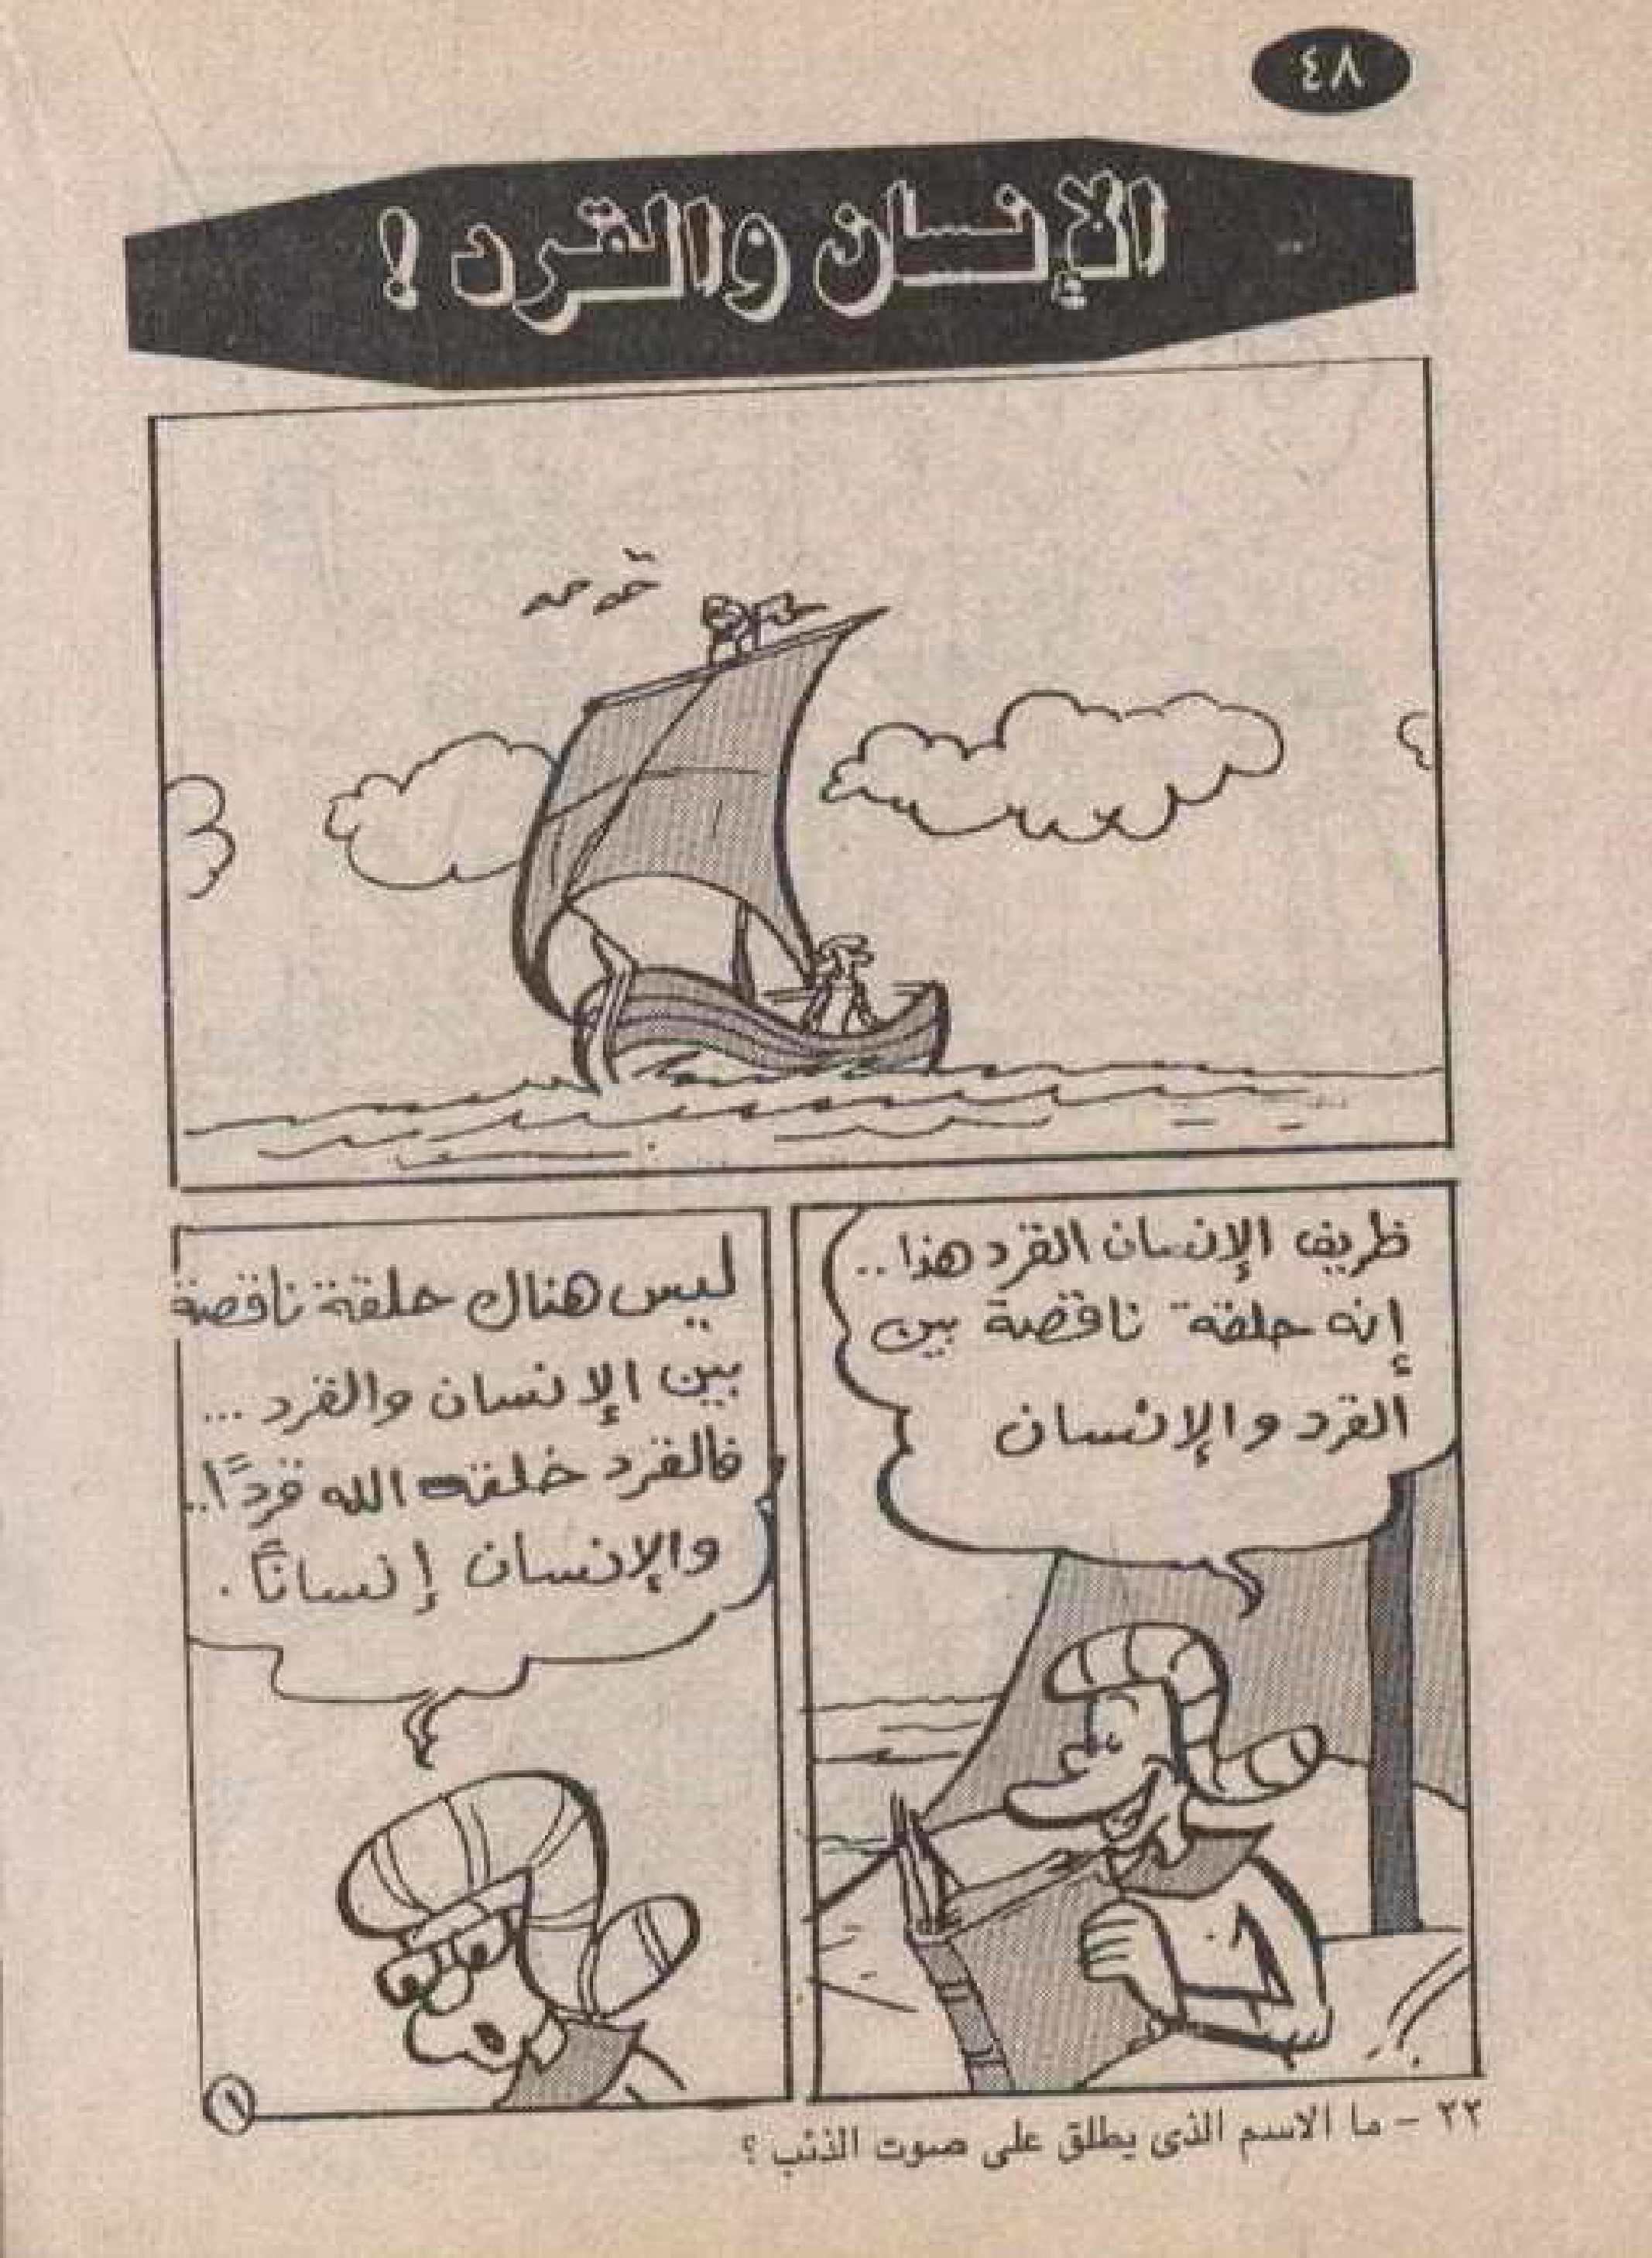 ٨٤
الإنسان والقرد !
ظريف الإنسان القرد هذا ..
إنه حلقة ناقصة بين
القرد والإنسان
ليس هناك حلقة ناقصة
بين الإنسان والقرد ...
فالقرد خلقه الله قردًا ..
والإنسان إنسانًا .
١
٢٢ - ما الاسم الذى يطلق على صوت الذئب ؟